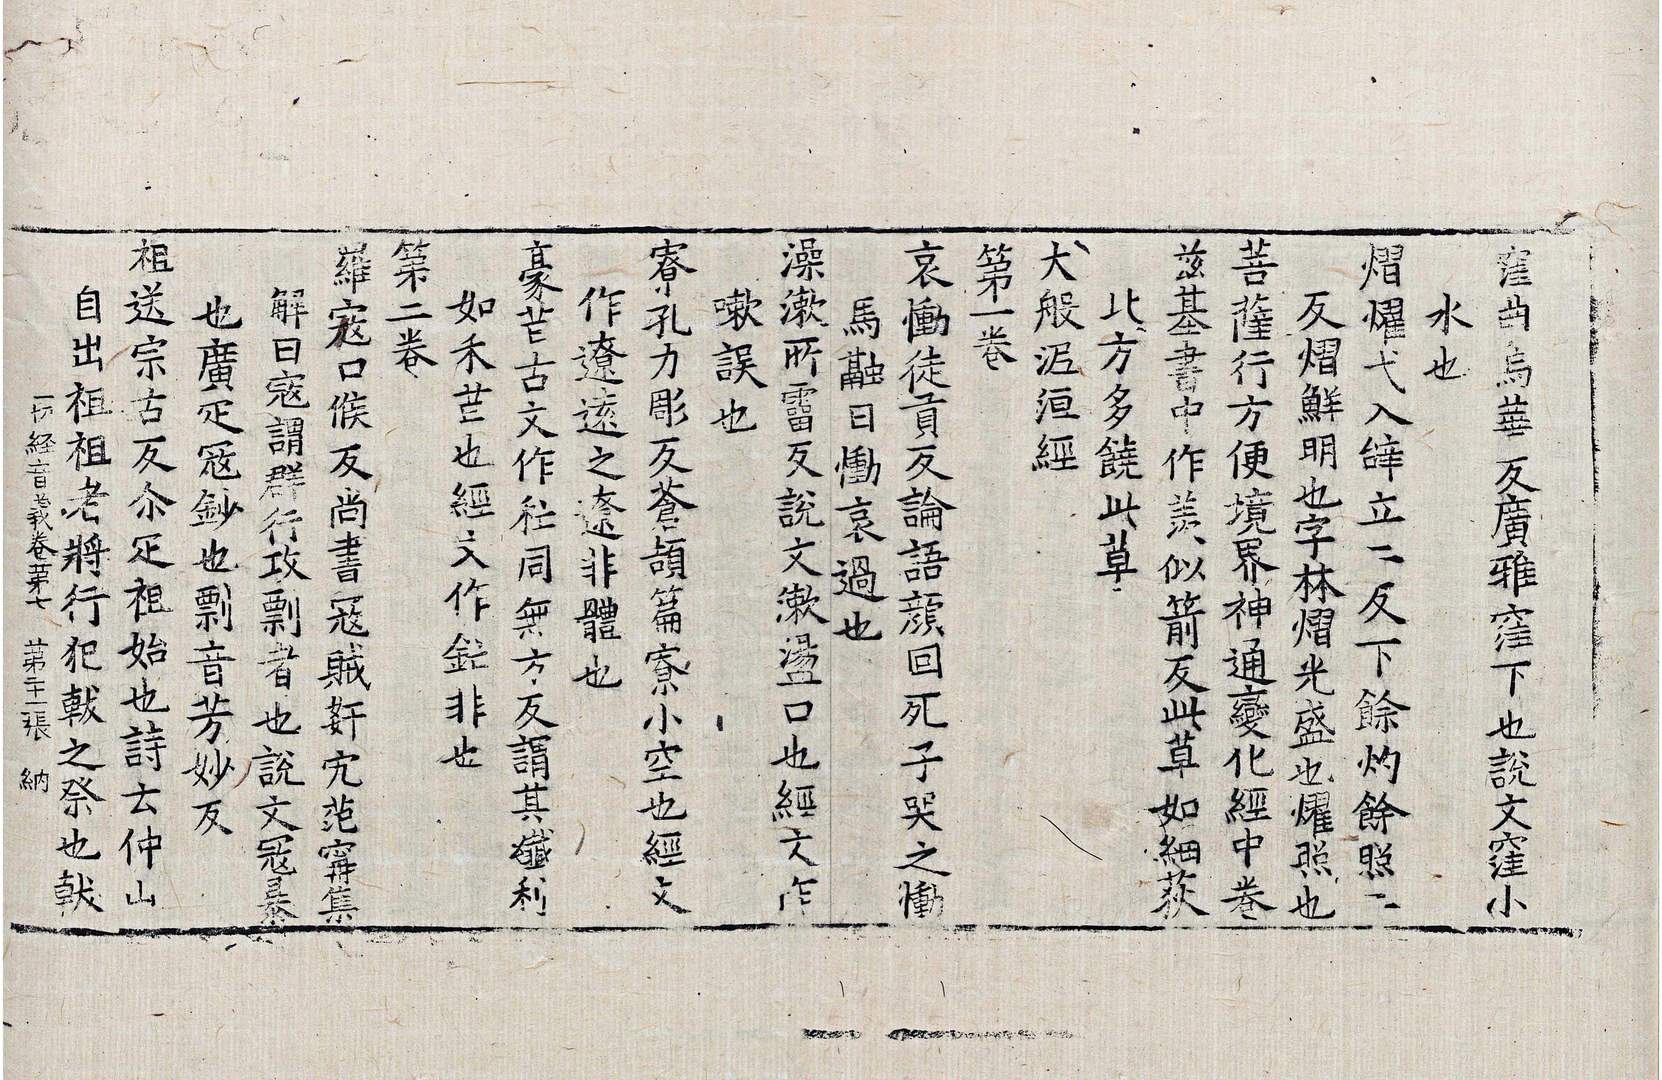 窪凷烏華反廣雅窪下也說文窪小
水也
熠燿弋入䛐立二反下餘灼餘照二
反熠鮮明也字林熠光盛也燿照也
菩薩行方便境界神通變化經中卷
茲基書中作羡似箭反此草如細荻
比方多饒此草
大般泥洹經
第一卷
哀慟徒貢反論語顔回死子哭之慟
馬融曰慟哀過也
澡漱所霤反說文漱盪口也經文作
嗽誤也
寮孔力彫反蒼頡篇寮小空也經文
作遼遠之遼遼非體也
豪芒古文作𥝩同無方反謂其纎利
如禾芒也經文作鋩非也
第二卷
羅寇口候反尚書寇賊姧宄范甯集
解曰寇謂群行攻剽者也說文寇暴
也廣疋寇鈔也剽音芳妙反
祖送宗古反尒疋祖始也詩云仲山
自出祖祖者將行犯軷之祭也軷
一切経音義卷第七 第二十一張 納